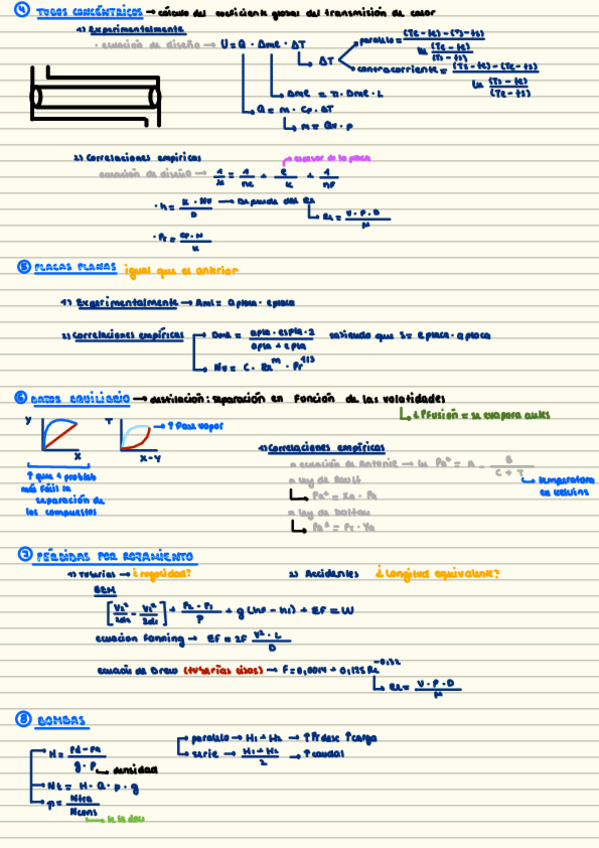 ④ TUBOS CONCÉNTRICOS → cálculo del coeficiente global del transmisión de calor
1) Experimentalmente
· ecuación de diseño → U = Q · Ame · ΔT
ΔT
paralelo = (Te-te)-(Ts-ts) / ln (Te-te)/(Ts-ts)
contracorriente = (Ts-te)-(Te-ts) / ln (Ts-te)/(Te-ts)
Ame = π · Dme · L
Q = m · Cp · ΔT
m = Qv · ρ
2) Correlaciones empíricas
espesor de la placa
ecuación de diseño → 1/u = 1/hc + e/k + 1/hF
· h = K · Nu / D → Depende del Re
Re = v · ρ · D / μ
· Pr = cp · μ / k
⑤ PLACAS PLANAS igual que el anterior
1) Experimentalmente → Aml = aplaca · eplaca
2) Correlaciones empíricas
Dme = apla · espla · 2 / apla + epla sabiendo que S = eplaca · aplaca
Nu = C · Re^m · Pr^1/3
⑥ DATOS EQUILIBRIO → destilación: separación en función de las volatidades
↓ Pfusión = se evapora antes
y
x
T
x-y
↑ Fase vapor
más fácil la
separación de
los compuestos
1) Correlaciones empíricas
ecuación de Antoine → ln Pa° = A - B / C + T
temperatura
en kelvins
ley de Raoult
Pa° = xa · Pa
ley de Dalton
Pa° = PT · Ya
⑦ PÉRDIDAS POR ROZAMIENTO
1) Tuberías → ¿rugosidad?
2) Accidentes ¿Longitud equivalente?
BEM
[V2²/2α2 - V1²/2α1] + P2 - P1 / ρ + g (h2 - h1) + EF = W
ecuación Fanning → EF = 2F V² · L / D
ecuación de Drew (tuberías lisas) → F = 0,0014 + 0,125 Re^-0,32
Re = v · ρ · D / μ
⑧ BOMBAS
H = Pd - Pa / g · ρ → densidad
Nt = H · Q · ρ · g
η = Ntra / Ncons
paralelo → H1 + H2
serie → H1 + H2 / 2 → ↑ caudal